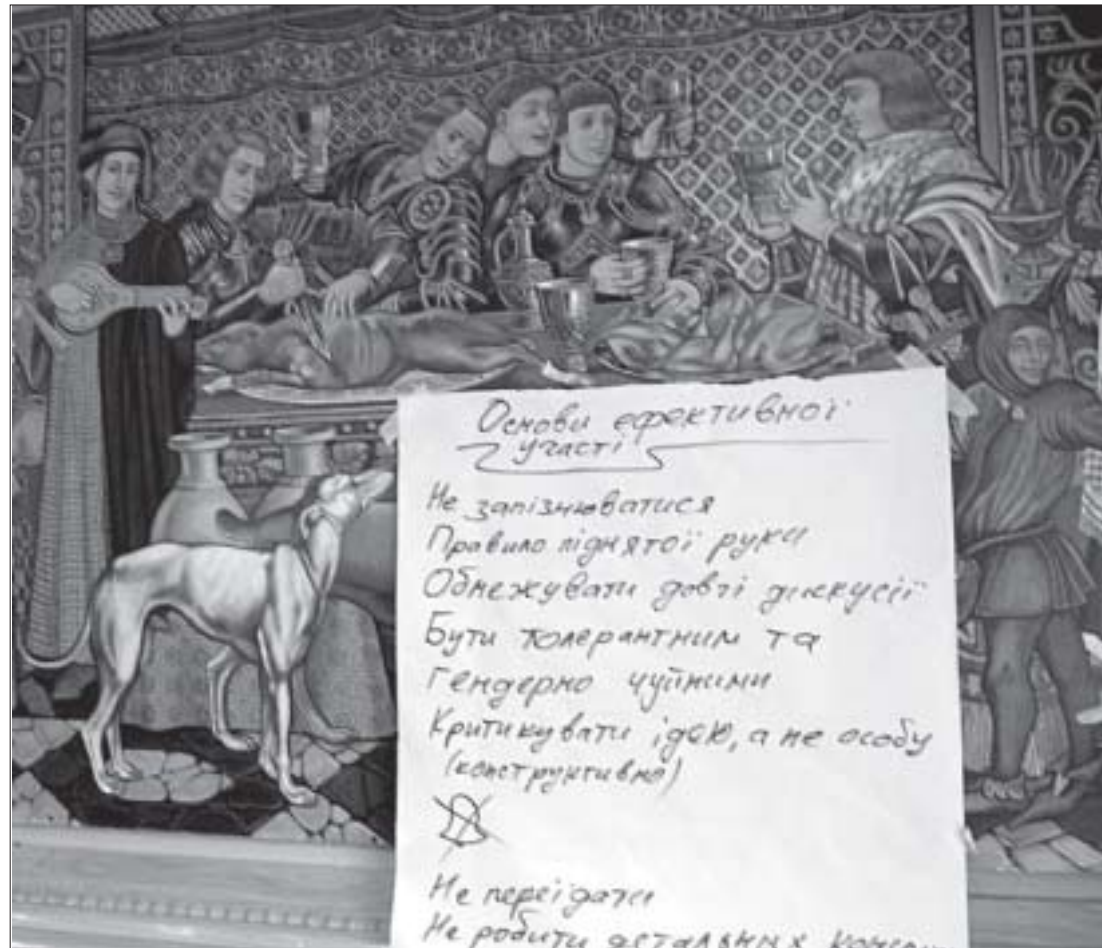 Основи ефективної
участі
Не запізнюватися
Правило піднятої руки
Обмежувати довгі дискусії
Бути толерантним та
гендерно чуйними
Критикувати ідею, а не особу
(конструктивно)
Не переїдати
Не робити детальних